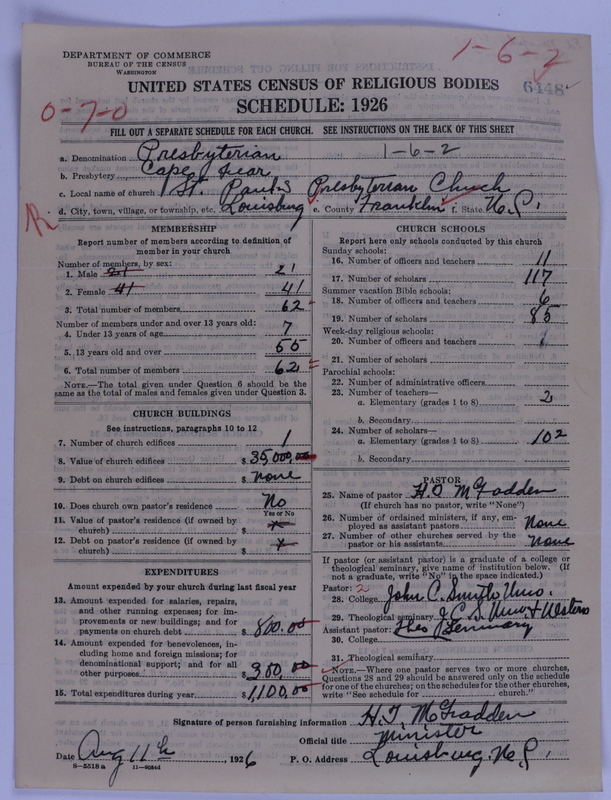 DEPARTMENT OF COMMERCE
BUREAU OF THE CENSUS
WASHINGTON
1-6-2
UNITED STATES CENSUS OF RELIGIOUS BODIES
6448
SCHEDULE: 1926
0-7-0
FILL OUT A SEPARATE SCHEDULE FOR EACH CHURCH. SEE INSTRUCTIONS ON THE BACK OF THIS SHEET
a. Denomination Presbyterian 1-6-2
b. Presbytery Cape Fear
c. Local name of church St. Paul's Presbyterian Church
R d. City, town, village, or township, etc. Louisburg e. County Franklin f. State N.C.
MEMBERSHIP
Report number of members according to definition of member in your church
Number of members, by sex:
1. Male 21 21
2. Female 41 41
3. Total number of members 62
Number of members under and over 13 years old:
4. Under 13 years of age 7
5. 13 years old and over 55
6. Total number of members 62
NOTE.—The total given under Question 6 should be the same as the total of males and females given under Question 3.
CHURCH BUILDINGS
See instructions, paragraphs 10 to 12
7. Number of church edifices 1
8. Value of church edifices $ 35000,00
9. Debt on church edifices $ None
10. Does church own pastor's residence No
Yes or No
11. Value of pastor's residence (if owned by church) $ x
12. Debt on pastor's residence (if owned by church) $ x
EXPENDITURES
Amount expended by your church during last fiscal year
13. Amount expended for salaries, repairs, and other running expenses; for improvements or new buildings; and for payments on church debt $ 800.00
14. Amount expended for benevolences, including home and foreign missions; for denominational support; and for all other purposes $ 300,00
15. Total expenditures during year $ 1100,00
CHURCH SCHOOLS
Report here only schools conducted by this church
Sunday schools:
16. Number of officers and teachers 11
17. Number of scholars 117
Summer vacation Bible schools:
18. Number of officers and teachers 6
19. Number of scholars 85
Week-day religious schools:
20. Number of officers and teachers
21. Number of scholars
Parochial schools:
22. Number of administrative officers
23. Number of teachers—
a. Elementary (grades 1 to 8) 2
b. Secondary
24. Number of scholars—
a. Elementary (grades 1 to 8) 102
b. Secondary
PASTOR
25. Name of pastor McFadden
(If church has no pastor, write "None")
26. Number of ordained ministers, if any, employed as assistant pastors None
27. Number of other churches served by the pastor or his assistants None
If pastor (or assistant pastor) is a graduate of a college or theological seminary, give name of institution below. (If not a graduate, write "No" in the space indicated.)
Pastor: 2
28. College John C. Smith Univ.
29. Theological seminary J.C.S. Univ + Western
Assistant pastor: Theo Seminary
30. College
31. Theological seminary
NOTE.—Where one pastor serves two or more churches, Questions 28 and 29 should be answered only on the schedule for one of the churches; on the schedules for the other churches, write "See schedule for ........ church."
Signature of person furnishing information McFadden
Official title Minister
Date Aug 11th, 1926 P. O. Address Louisburg, N.C.
8-5518a 11-9054d